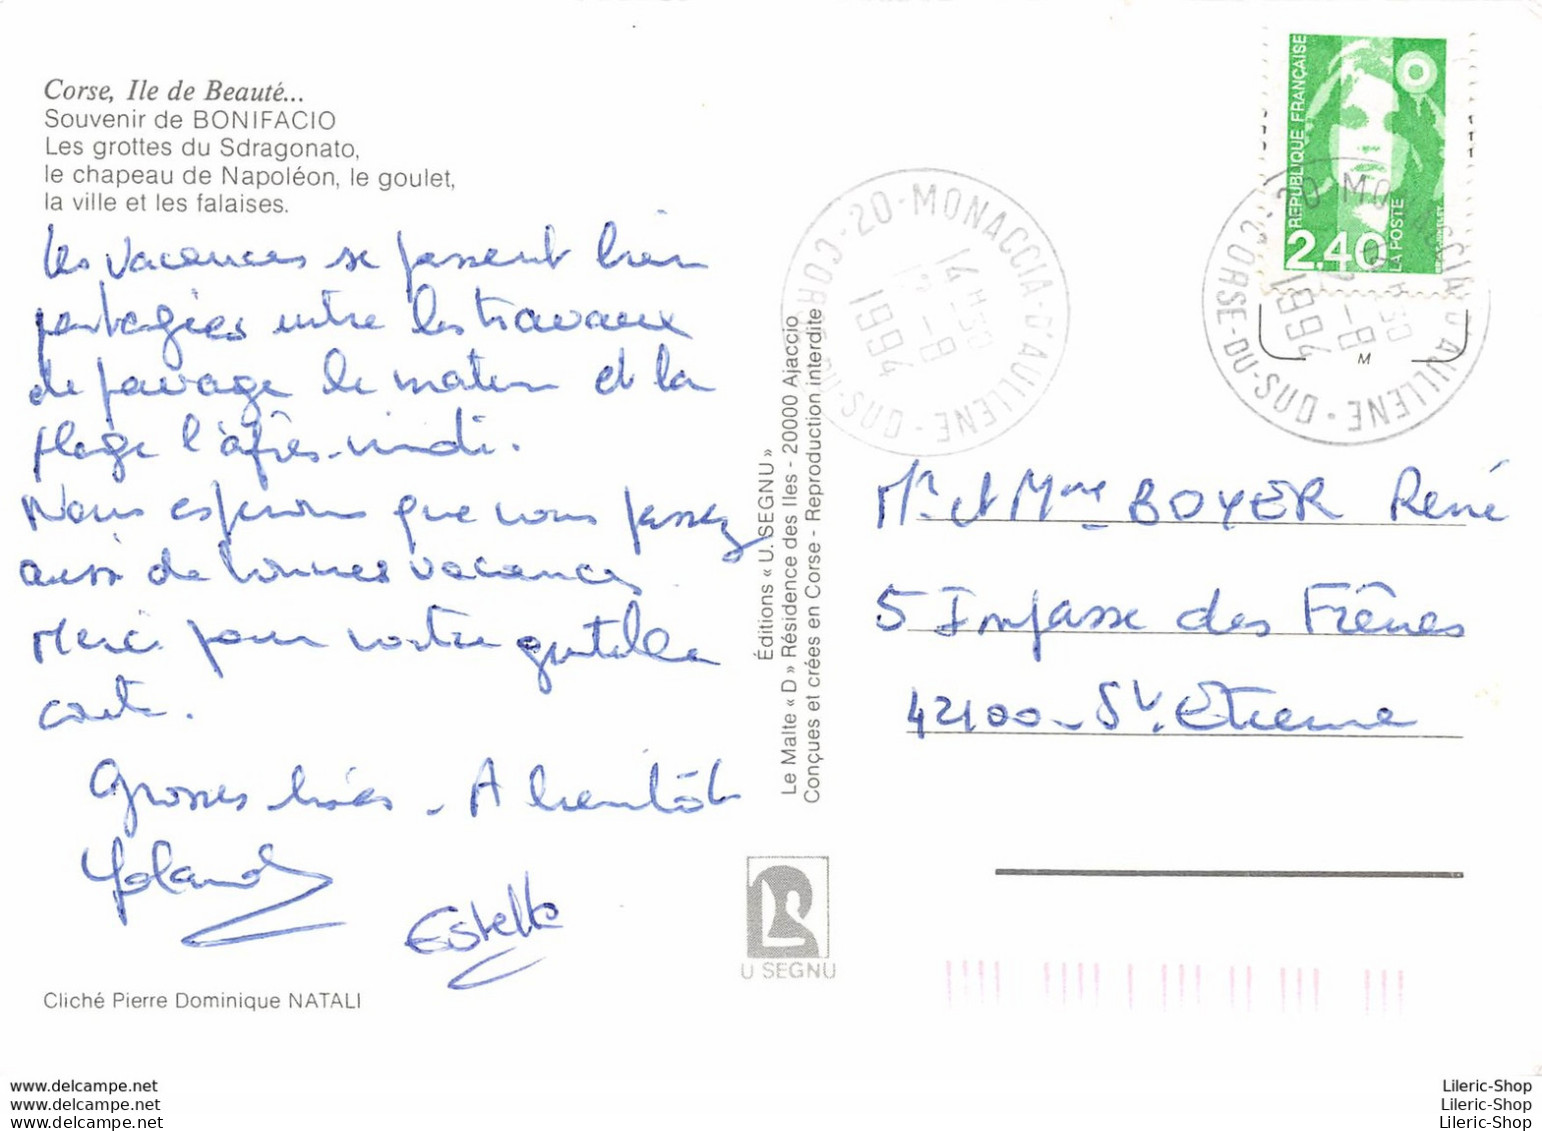 Corse, Ile de Beauté...
Souvenir de BONIFACIO
Les grottes du Sdragonato,
le chapeau de Napoléon, le goulet,
la ville et les falaises.
Les vacances se passent bien
partagées entre les travaux
de pavage le matin et la
plage l'après-midi.
Nous espérons que vous passez
aussi de bonnes vacances
Merci pour votre gentille
carte.
Grosses bises - A bientôt
Yolande
Estelle
Cliché Pierre Dominique NATALI
Éditions « U. SEGNU »
Le Malte « D » Résidence des Iles - 20000 Ajaccio
Conçues et crées en Corse - Reproduction interdite
U SEGNU
20-MONACCIA-D'AULLENE
CORSE-DU-SUD
14H50
-8
1994
RÉPUBLIQUE FRANÇAISE
2,40
LA POSTE
20 MONACCIA D'AULLENE
CORSE-DU-SUD
-8
1994
M
Mr et Mme BOYER René
5 Impasse des Frênes
42100 - St. Etienne
www.delcampe.net
www.delcampe.net
www.delcampe.net
Lileric-Shop
Lileric-Shop
Lileric-Shop